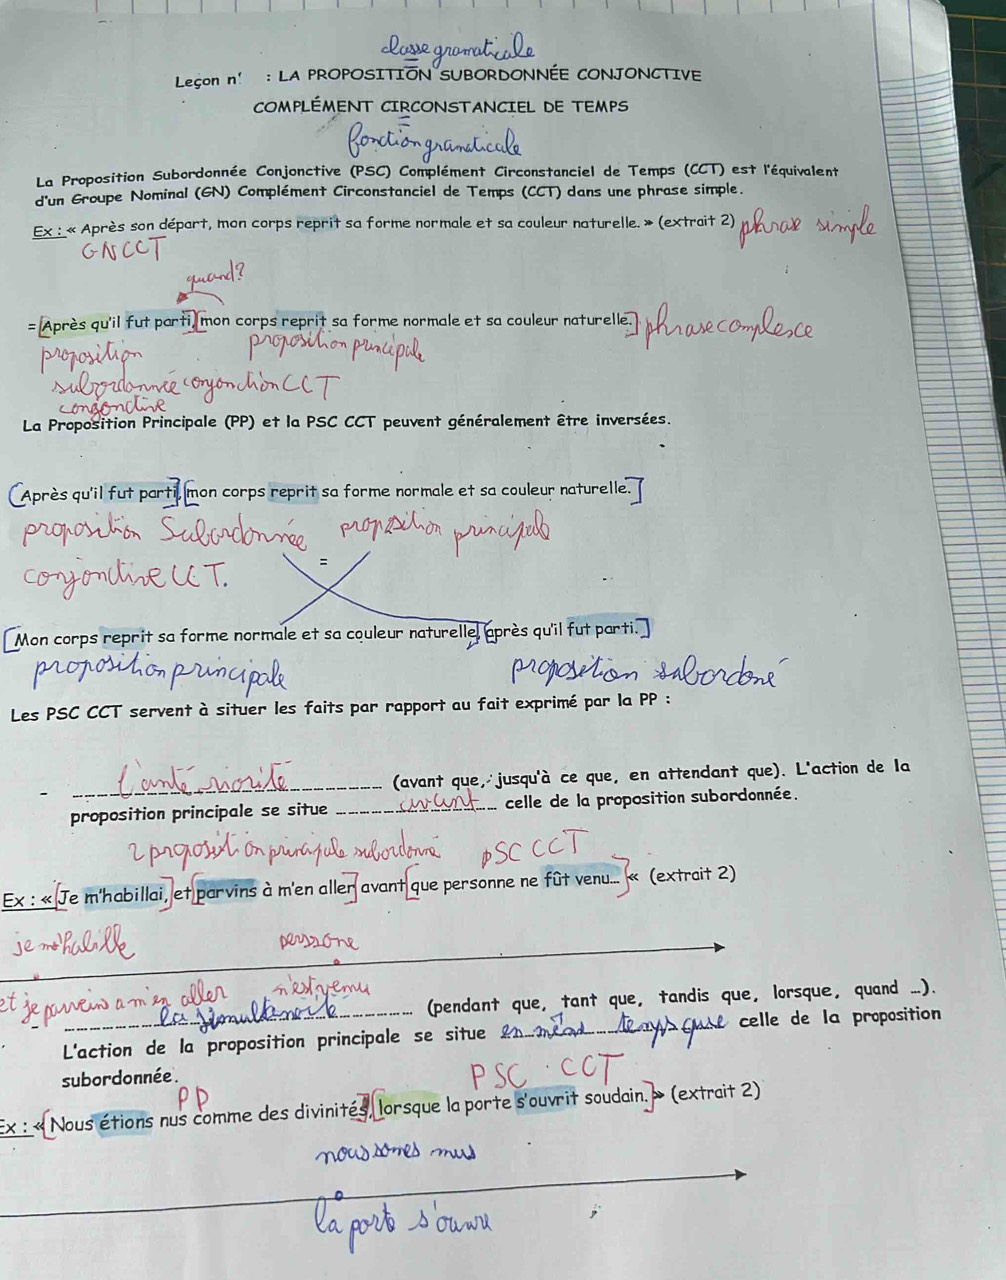 classe gramaticale
Leçon n° : LA PROPOSITION SUBORDONNÉE CONJONCTIVE
COMPLÉMENT CIRCONSTANCIEL DE TEMPS
fonction gramaticale
La Proposition Subordonnée Conjonctive (PSC) Complément Circonstanciel de Temps (CCT) est l'équivalent
d'un Groupe Nominal (GN) Complément Circonstanciel de Temps (CCT) dans une phrase simple.
Ex : « Après son départ, mon corps reprit sa forme normale et sa couleur naturelle. » (extrait 2) phrase simple
GNCCT
quand?
= [Après qu'il fut parti,][mon corps reprit sa forme normale et sa couleur naturelle.] phrase complexce
proposition proposition principale
subordonnée conjonction CCT
congonctive
La Proposition Principale (PP) et la PSC CCT peuvent généralement être inversées.
[Après qu'il fut parti],[mon corps reprit sa forme normale et sa couleur naturelle.]
proposition Subordonnée proposition principale
conjonctive CCT.
=
[Mon corps reprit sa forme normale et sa couleur naturelle][après qu'il fut parti.]
proposition principale proposition subordoné
Les PSC CCT servent à situer les faits par rapport au fait exprimé par la PP :
- L'antériorité (avant que, jusqu'à ce que, en attendant que). L'action de la
proposition principale se situe avant celle de la proposition subordonnée.
2 proposition principale subordonné PSC CCT
Ex : « [Je m'habillai,] et [parvins à m'en aller] avant [que personne ne fût venu...] « (extrait 2)
je m'habille perssone
et je parvein a m'en aller n'est venu
- la simultanéité (pendant que, tant que, tandis que, lorsque, quand ...).
L'action de la proposition principale se situe en même temps que celle de la proposition
subordonnée.
PP PSC CCT
Ex : « [Nous étions nus comme des divinités,][lorsque la porte s'ouvrit soudain.] » (extrait 2)
nous somes nus
la porte s'ouvre